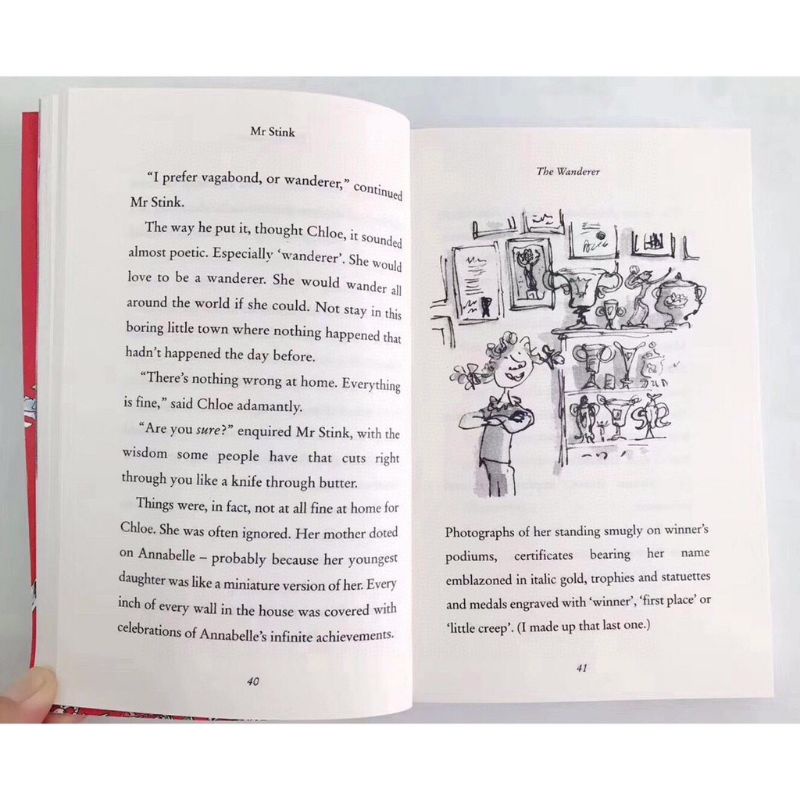 Mr Stink
“I prefer vagabond, or wanderer,” continued
Mr Stink.
The way he put it, thought Chloe, it sounded
almost poetic. Especially ‘wanderer’. She would
love to be a wanderer. She would wander all
around the world if she could. Not stay in this
boring little town where nothing happened that
hadn’t happened the day before.
“There’s nothing wrong at home. Everything
is fine,” said Chloe adamantly.
“Are you sure?” enquired Mr Stink, with the
wisdom some people have that cuts right
through you like a knife through butter.
Things were, in fact, not at all fine at home for
Chloe. She was often ignored. Her mother doted
on Annabelle – probably because her youngest
daughter was like a miniature version of her. Every
inch of every wall in the house was covered with
celebrations of Annabelle’s infinite achievements.
40
The Wanderer
Photographs of her standing smugly on winner’s
podiums, certificates bearing her name
emblazoned in italic gold, trophies and statuettes
and medals engraved with ‘winner’, ‘first place’ or
‘little creep’. (I made up that last one.)
41